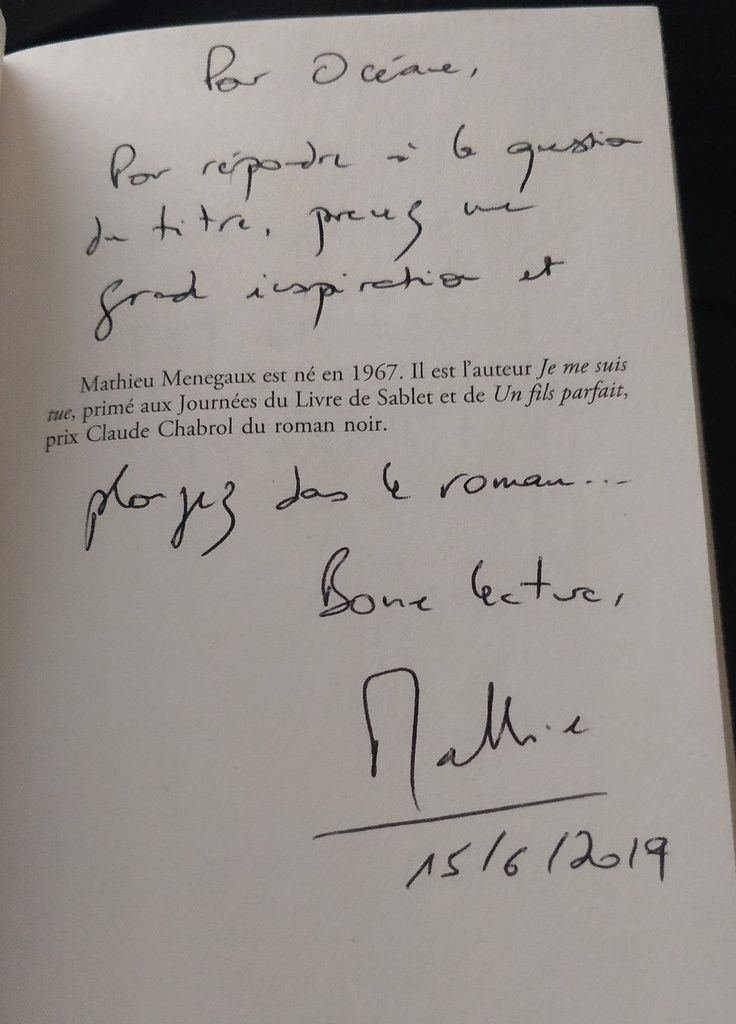 Pour Océane,
Pour répondre à la question
du titre, prenez une
grande inspiration et
Mathieu Menegaux est né en 1967. Il est l'auteur Je me suis
tue, primé aux Journées du Livre de Sablet et de Un fils parfait,
prix Claude Chabrol du roman noir.
plongez dans le roman...
Bonne lecture,
Mathieu
15/6/2019